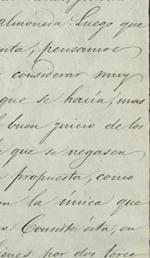 almoneda. Luego que
uita, pensamos
considerar muy
que se hacía, mas
l buen juicio de los
que se negasen
propuesta, como
la única que
o. Consiste ésta, en
por dos terce